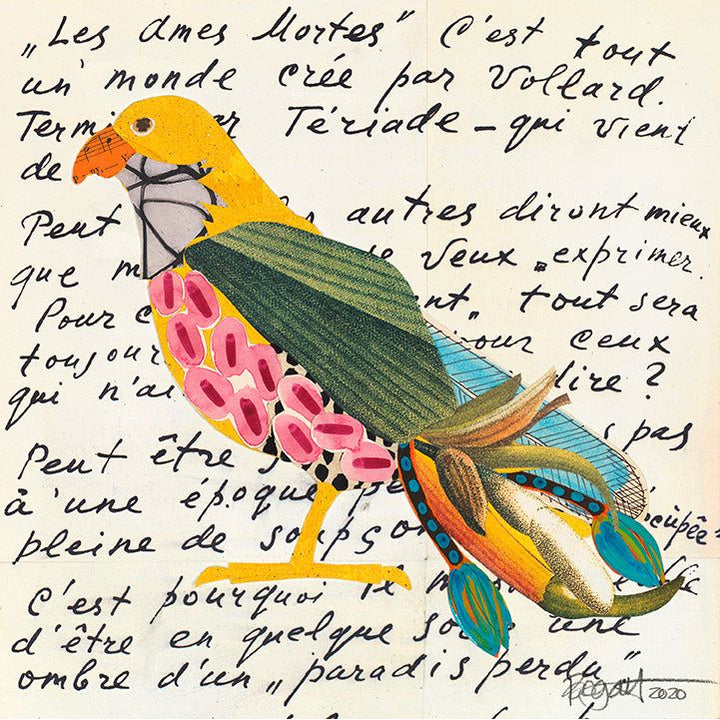 „Les âmes Mortes" C'est tout
un monde crée par Vollard.
Term ar Tériade – qui vient
de
Peut les autres diront mieux
que m je veux „exprimer.
Pour c ent„ tout sera
toujour pour ceux
qui n'a dire ?
Peut être s pas
à une époque pe cupée
pleine de soupço
C'est pourquoi il m
d'être en quelque so une
ombre d'un „paradis perdu„
2020